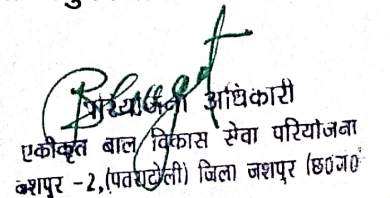 Bhagat
परियोजना अधिकारी
एकीकृत बाल विकास सेवा परियोजना
जशपुर -2,(पतराटोली) जिला जशपुर (छ०ग०